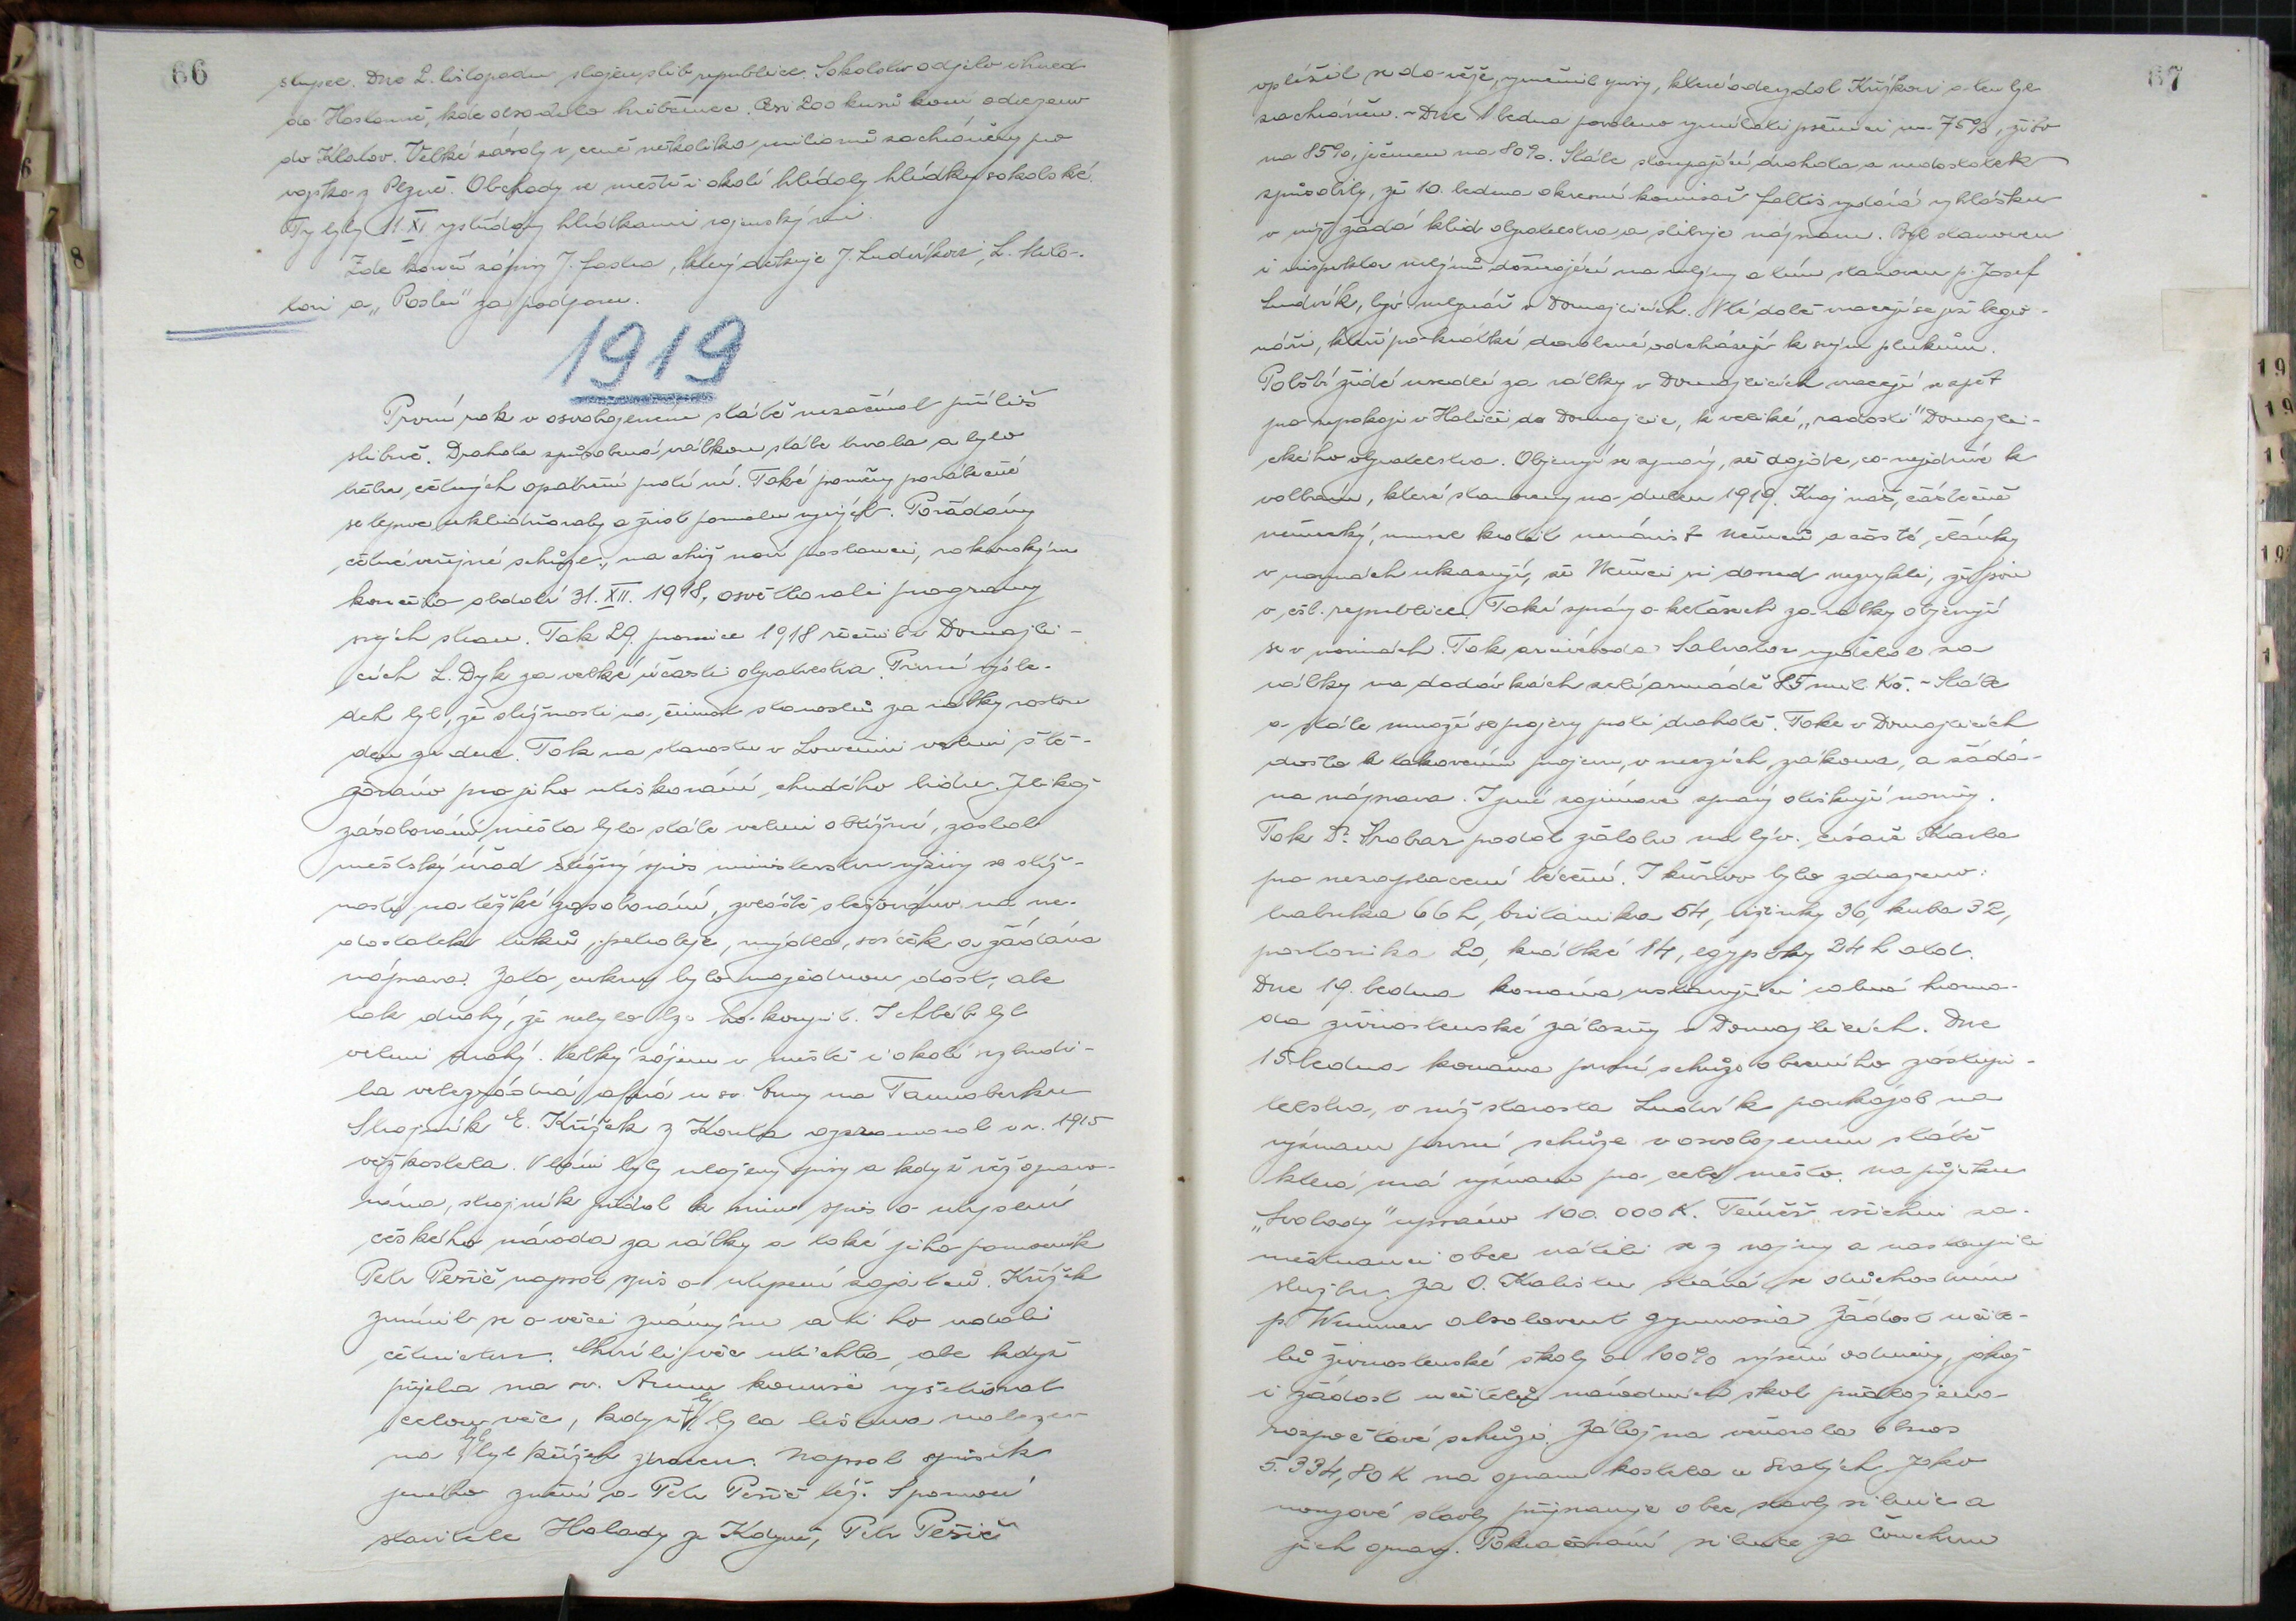 66
slupce. Dne 2. listopadu složen slib republice. Sokolstvo odjelo ihned
do Hostouně, kde obsadilo hřebčinec. Asi 200 kusů koní odvezeno
do Klatov. Velké zásoby v ceně několika milionů zachráněny pro
vojsko z Plzně. Obchody ve městě i okolí hlídaly hlídky sokolské.
Ty byly 11. XI. vystřídány hlídkami vojenskými.
Zde končí zápisy J. , který děkuje J. Ludvíkovi, L.
a „Poslu" za podporu.
1919
První rok v osvobozeném státě nezačínal příliš
slibně. Drahota způsobená válkou stále trvala a bylo
třeba četných opatření proti ní. Také poměry poválečné
se teprve uklidňovaly a život pomalu . Pořádány
četné veřejné schůze, na nichž noví poslanci, rakouským
končilo období 31. XII. 1918, osvětlovali programy
svých stran. Tak 29. prosince 1918 řečnil v Domažli-
cích L. Dyk za velké účasti obyvatelstva. První výsle-
dek byl, že stížnosti na činnost starostů za války rostou
den ze dne. Tak na starostu v Loučimi velmi stě-
žováno pro jeho utiskování chudého lidu. Jelikož
zásobování města bylo stále velmi obtížné, zaslal
městský úřad stížný spis ministerstvu výživy se stíž-
ností na těžké zásobování, zvláště stěžováno na ne-
dostatek tuků, petroleje, mýdla, svíček a žádána
náprava. Zato cukru bylo najednou dosti, ale
tak drahý, že nebylo lze ho koupit. I chléb byl
velmi drahý. Velký zájem v městě i okolí vzbudi-
la velezrádná aféra u sv. Anny na Tannaberku
Strojník E. Křížek z Kouta opravoval v r. 1915
věž kostela. V báni byly uloženy spisy a když věž opravo-
vána, strojník přidal k nim spis o utrpení
českého národa za války a také jeho pomocník
Petr Pešič napsal spis o utrpení zajatců. Křížek
zmínil se o věci známým a ti ho udali
četnictvu. Chvíli věc utichla, ale když
přijela na sv. Annu komise vyšetřovat
celou věc, kdyžby byla listina naleze-
na byl byl Křížek ztracen. Napsal spisek
jiného znění a Petr Pešič též. S pomocí
stavitele Halady ze Kdyně, Petr Pešič
67
vplížil se do věže, vyměnil spisy, které odevzdal Křížkovi a ten byl
zachráněn. - Dne 1. ledna povoleno vymílati pšenici na 75%, žito
na 85%, ječmen na 80%. Stále stoupající drahota a nedostatek
způsobily, že 10. ledna okresní komisař Faltis vydává vyhlášku
v níž žádá klid obyvatelstva a slibuje nápravu. Byl stanoven
i inspektor mlýnů dozírající na mlýny a tím stanoven p. Josef
Ludvík, býv. mlynář v Domažlicích. V té době vracejí se již legio-
náři, kteří po krátké dovolené odcházejí k svým plukům.
Polští židé usedlí za války v Domažlicích vracejí se zpět
po nepokoji v Haliči do Domažlic, k veliké „radosti" Domažli-
ckého obyvatelstva. Objevují se zprávy, že dojde co nejdříve k
volbám, které stanoveny na duben 1919. Kraj náš, částečně
německý, musel krotit nenávist Němců a časté články
v novinách ukazují, že Němci si dosud nezvykli, že jsou
v čsl. republice. Také zprávy o keťasech za války objevují
se v novinách. Tak arcivévoda Salvator vydělal za
války na dodávkách zelí armádě 85 mil. Kč. - Stále
a stále množí se projevy proti drahotě. Také v Domažlicích
došlo k takovému projevu, v mezích zákona, a žádá-
na náprava. I jiné zajímavé zprávy otiskují noviny.
Tak Dr. Šrobar podal žalobu na býv. císaře Karla
pro nezaplacení léčení. I kuřivo bylo zdraženo:
trabuka 66 h, britanika 54, viržinky 36, kuba 32,
portorika 20, krátké 14, egyptky 24 h atd.
Dne 19. ledna konána ustavující valná hroma-
da živnostenské záložny v Domažlicích. Dne
15. ledna konána první schůze obecního zastupi-
telstva, v níž starosta Ludvík poukázal na
význam první schůze v osvobozeném státě
která má význam pro celé město. Na půjčku
„Svobody" upsáno 100.000 K. Téměř všichni za-
městnanci obce vrátili se z vojny a nastoupili
službu. Za O. Kalistu stává se důchodním
p. Wimmer absolvent gymnasia. Žádost učite-
lů živnostenské školy o 100% zvýšení odměny, jakož
i žádost učitelů národních škol předložena
rozpočtové schůzi. Záložna věnovala obnos
5.334,80 K na opravu kostela u Svatých. Jako
nouzové stavby přijímá obec stavby silnic a
jich opravy. Pokračování silnice za Čuchnu